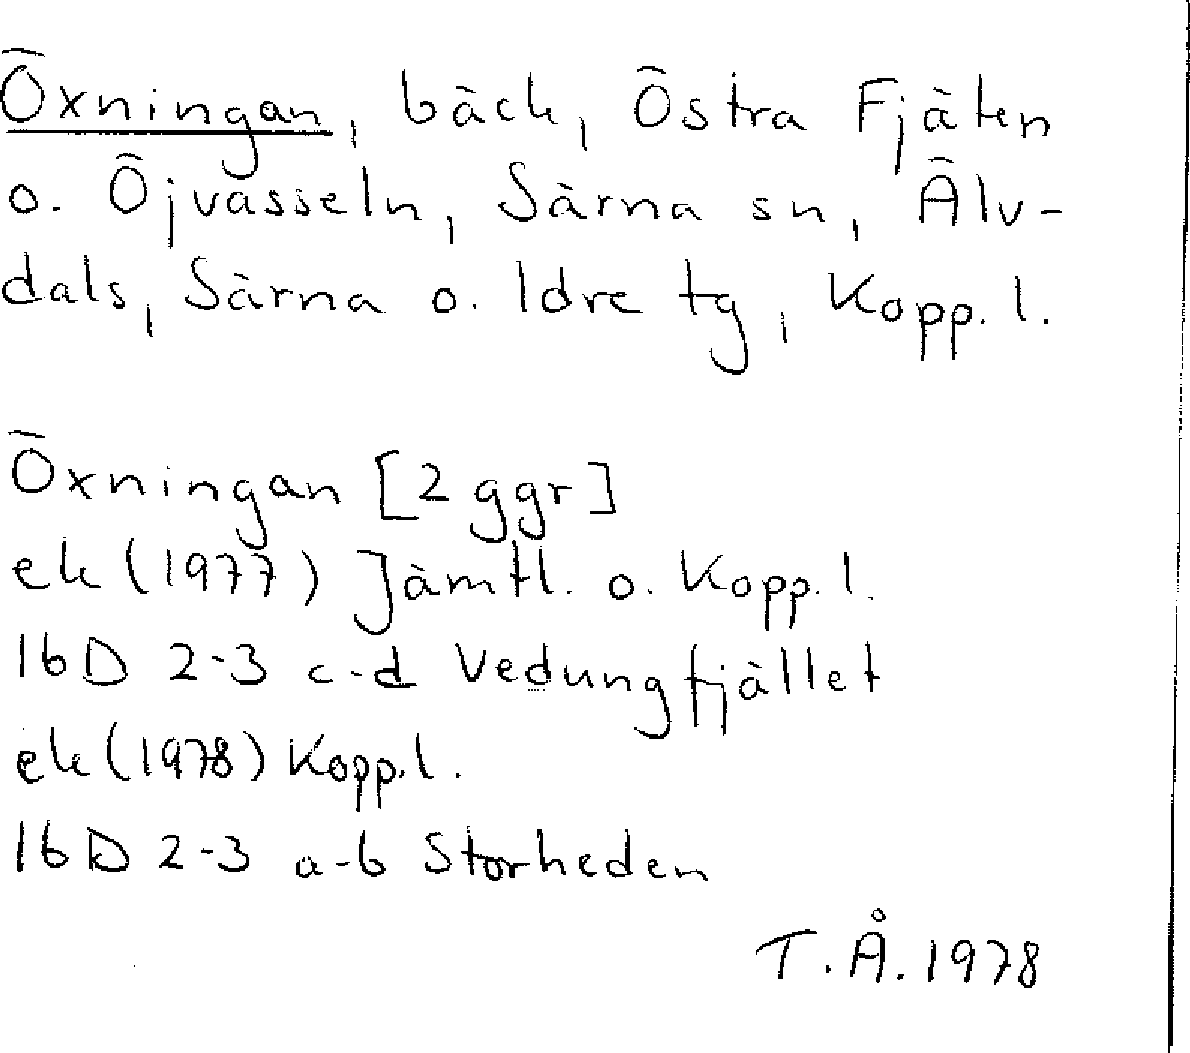 Öxningan, bäck, Östra Fjäten
o. Öjvasseln, Särna sn, Älv-
dals, Särna o. Idre tg, Kopp. l.
Öxningan [2 ggr]
ek (1977) Jämtl. o. Kopp. l.
16D 2-3 c-d Vedungfjället
ek (1978) Kopp. l.
16D 2-3 a-b Storheden
T. Å. 1978